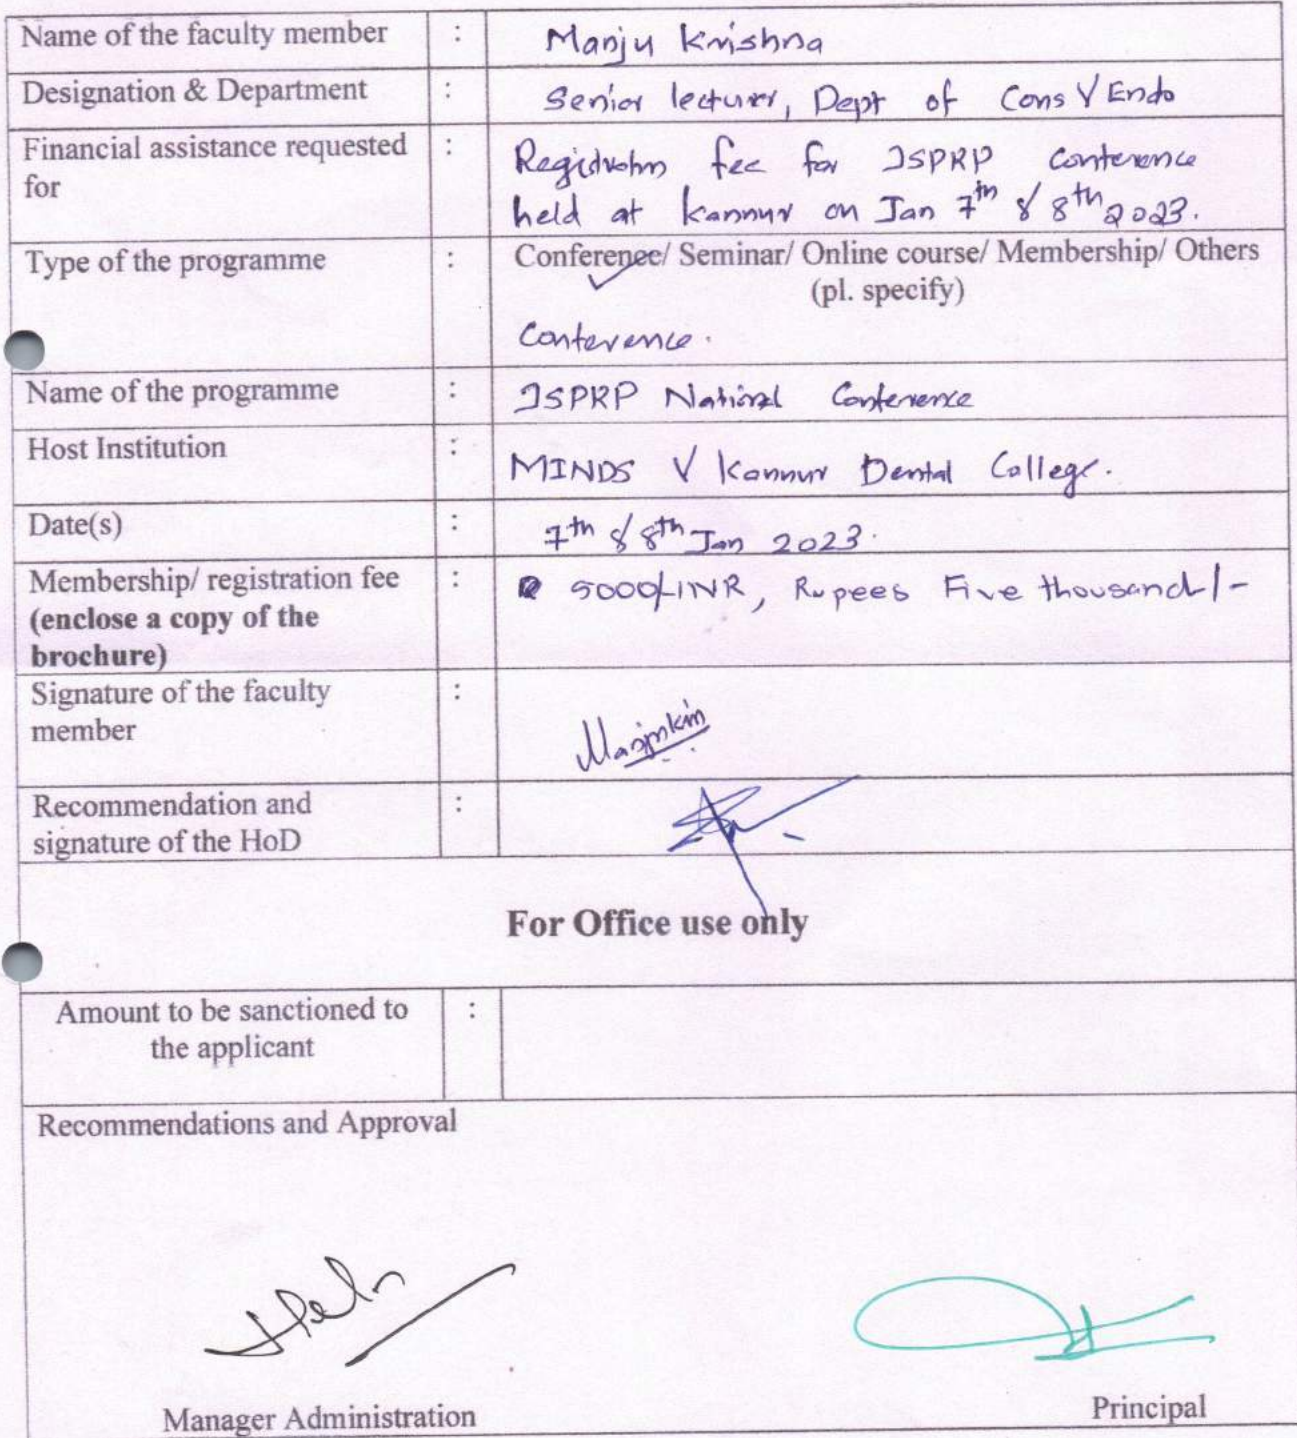 Name of the faculty member : Manju Krishna
Designation & Department : Senior lecturer, Dept of Cons & Endo
Financial assistance requested : Registration fee for ISPRP conference
for held at Kannur on Jan 7th & 8th 2023.
Type of the programme : Conference/ Seminar/ Online course/ Membership/ Others
(pl. specify)
Conference.
Name of the programme : ISPRP National Conference
Host Institution : MINDS & Kannur Dental College.
Date(s) : 7th & 8th Jan 2023.
Membership/ registration fee : 5000/-INR, Rupees Five thousand/-
(enclose a copy of the
brochure)
Signature of the faculty :
member
Recommendation and :
signature of the HoD
For Office use only
Amount to be sanctioned to :
the applicant
Recommendations and Approval
Manager Administration Principal